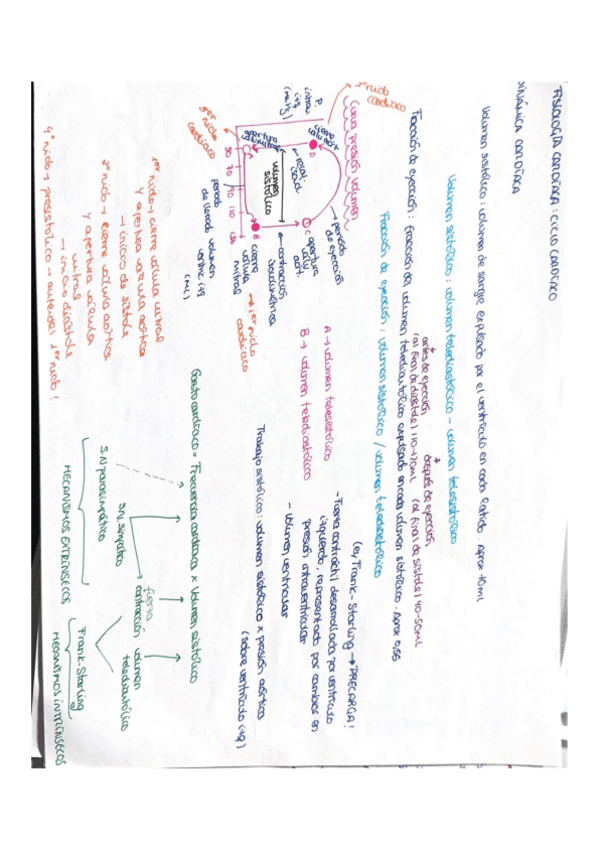 FISIOLOGÍA CARDÍACA: CICLO CARDÍACO
DINÁMICA CARDÍACA
Volumen sistólico: volumen de sangre expulsado por el ventrículo en cada latido. Aprox 70ml
Volumen sistólico: volumen telediastólico - volumen telesistólico
antes de eyección
(al final de diástole) 110-120ml
después de eyección
(al final de sístole) 40-50ml
Fracción de eyección: fracción del volumen telediastólico expulsado en cada volumen sistólico. Aprox 0,65
Fracción de eyección: volumen sistólico / volumen telediastólico
Curva presión volumen
P. intra. izq (mmHg)
2º ruido cardíaco
cierre valv. aór
D
relaj. isovol
periodo de eyección
C
apertura valv. aort.
volumen sistólico
contracción isovolumétrica
apertura valv mitral
A
B
cierre valv. mitral → 1er ruido cardíaco
3er ruido cardíaco
50 70 90 110 130
periodo de llenado
volumen ventric. izq (mL)
A → volumen telesistólico
B → volumen telediastólico
Ley Frank-Starling → PRECARGA!
- Fuerza contráctil desarrollada por ventrículo
izquierdo, representada por cambios en
presión intraventricular
- volumen ventricular
Trabajo sistólico: volumen sistólico x presión aórtica
(sobre ventrículo izq)
1er ruido → cierre válvula mitral
y apertura válvula aórtica
→ inicio de sístole
2º ruido → cierre válvula aórtica
y apertura válvula
mitral
→ inicio diástole
4º ruido → presistólico → antes del 1er ruido!
Gasto cardíaco = Frecuencia cardíaca x Volumen sistólico
S.N parasimpático
S.N. simpático
fuerza
contracción
volumen
telediastólico
MECANISMOS EXTRÍNSECOS
Frank-Starling
MECANISMOS INTRÍNSECOS